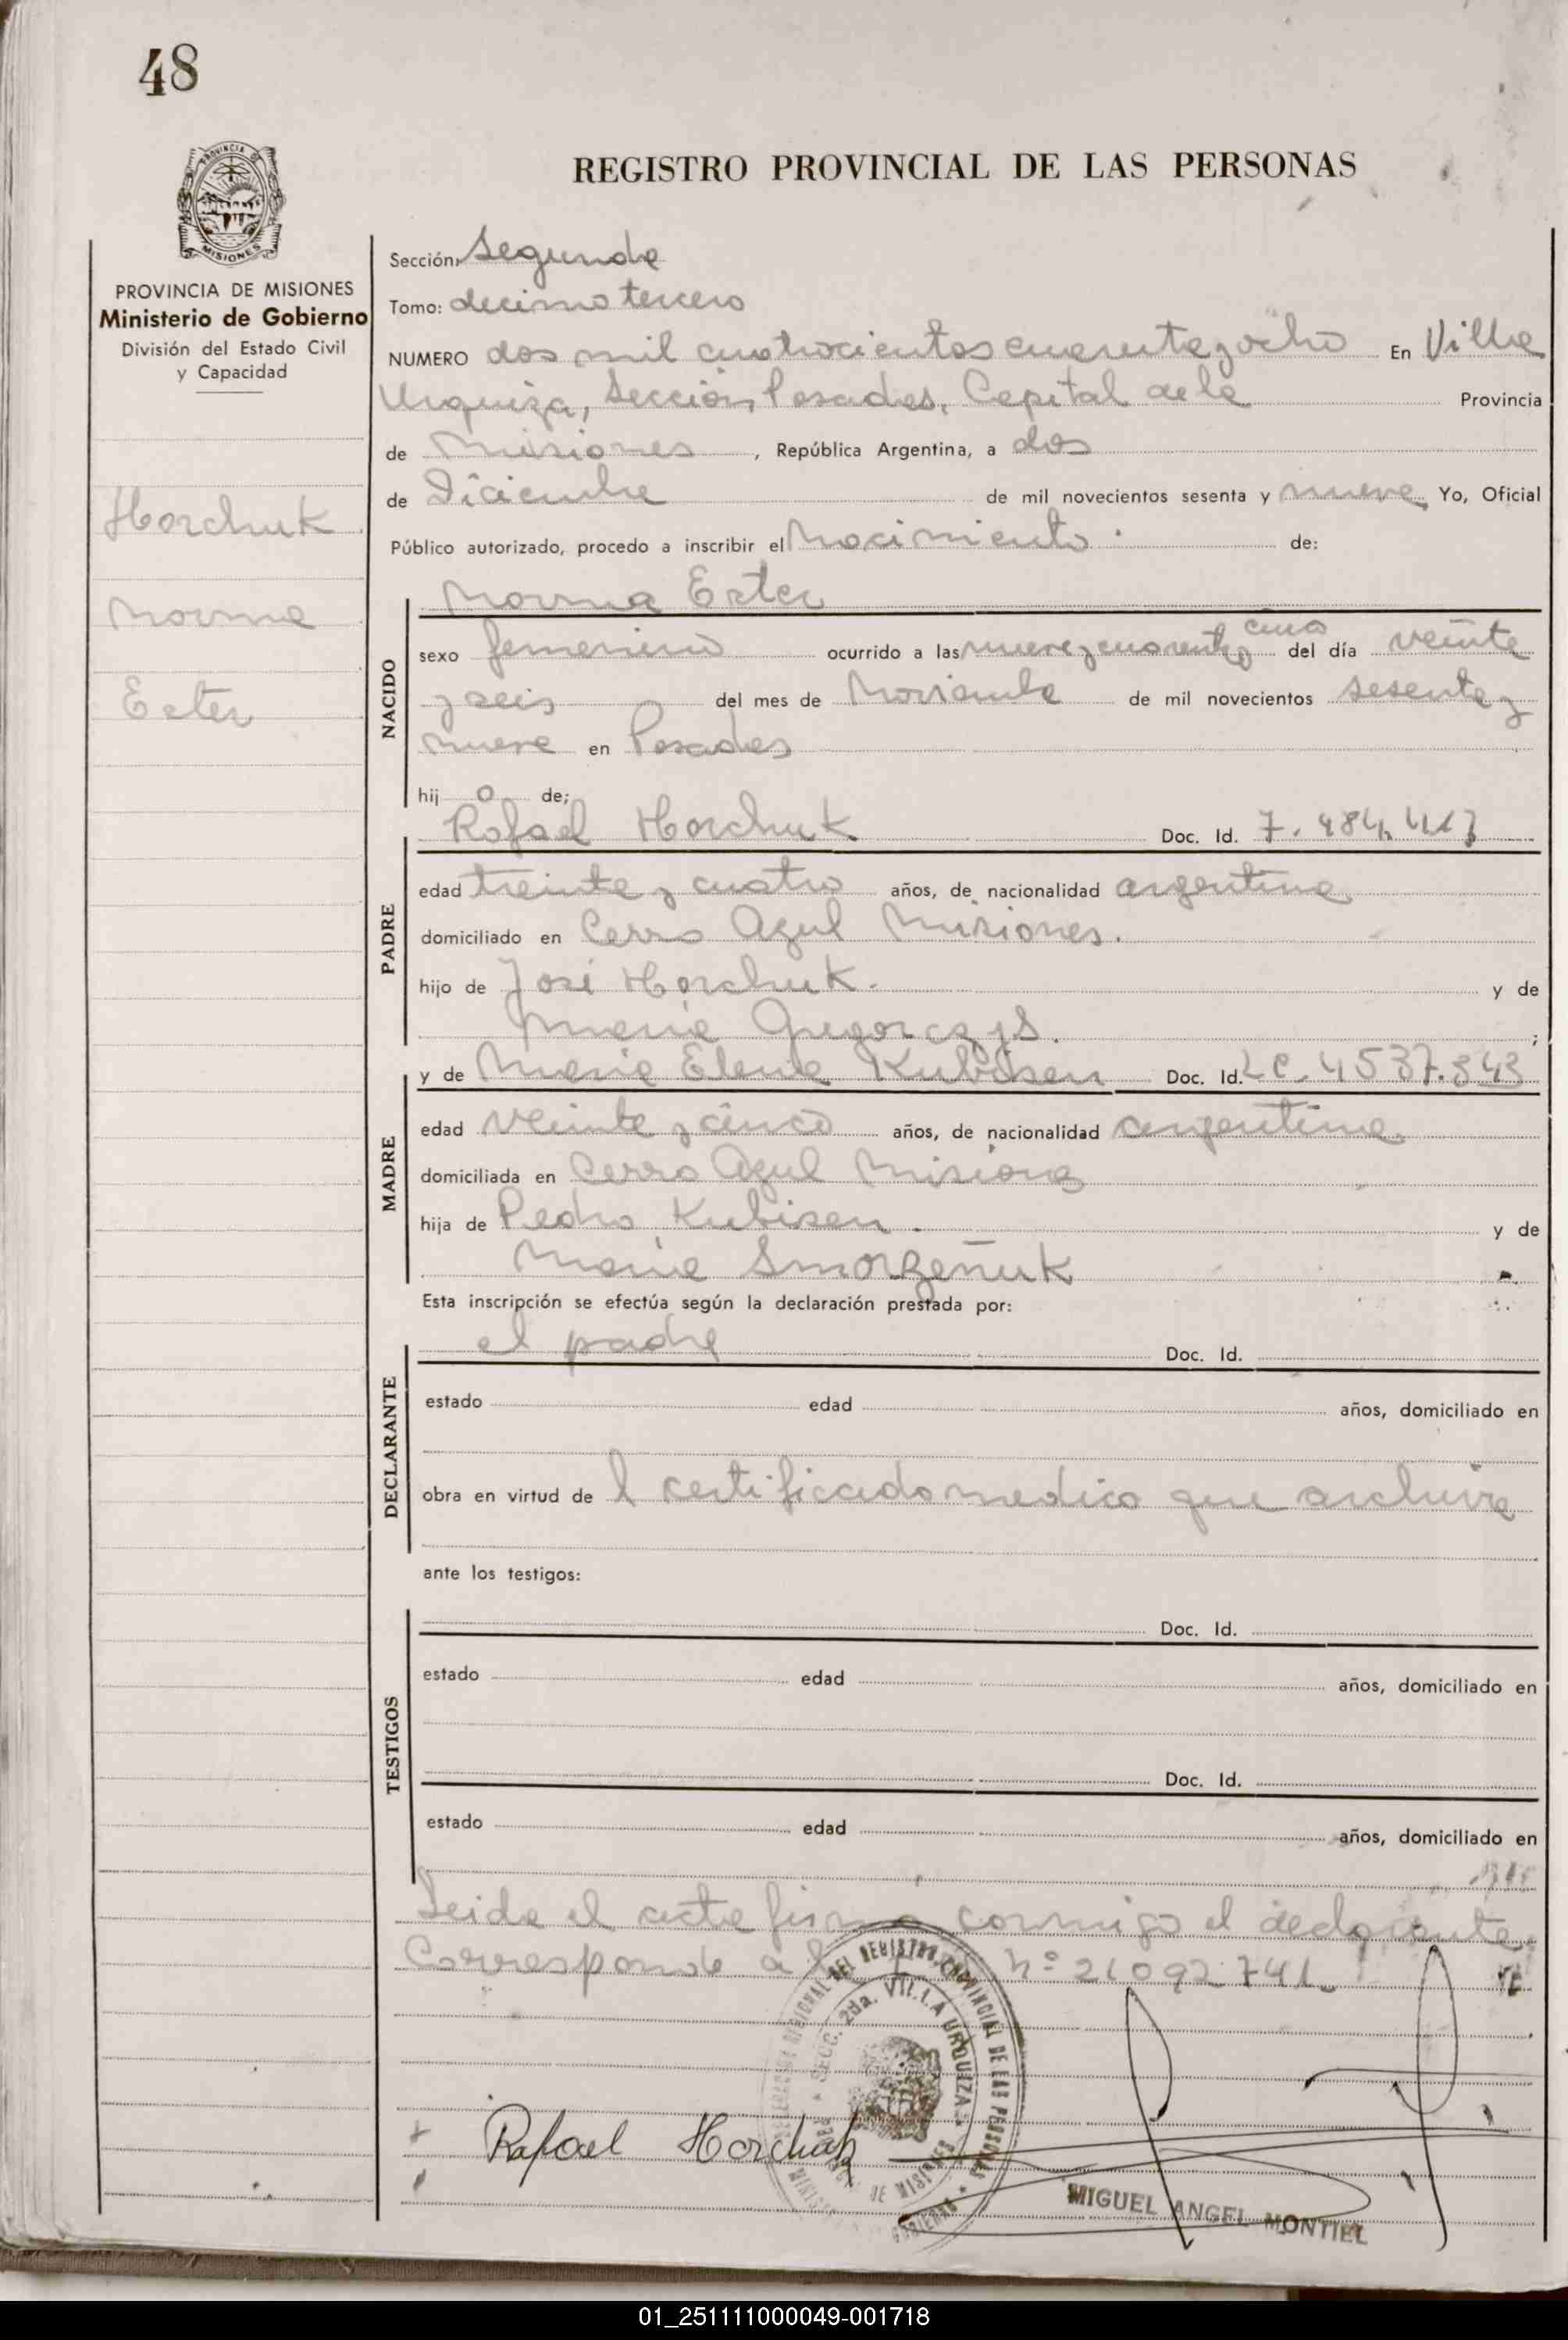 48
PROVINCIA DE
MISIONES
PROVINCIA DE MISIONES
Ministerio de Gobierno
División del Estado Civil
y Capacidad
Horchuk
Norma
Ester
REGISTRO PROVINCIAL DE LAS PERSONAS
Sección: Segunda
Tomo: decimo tercero
NUMERO dos mil cuatrocientos cuarenta y ocho En Villa
Urquiza, Sección Posadas, Capital de la Provincia
de Misiones, República Argentina, a dos
de Diciembre de mil novecientos sesenta y nueve Yo, Oficial
Público autorizado, procedo a inscribir el Nacimiento de:
NACIDO
Norma Ester
sexo femenino ocurrido a las nueve y cuarenta del día veinte
y seis del mes de Noviembre de mil novecientos sesenta y
nueve en Posadas
hij o de;
PADRE
Rafael Horchuk Doc. Id. 7.484.413
edad treinta y cuatro años, de nacionalidad argentina
domiciliado en Cerro Azul Misiones.
hijo de José Horchuk. y de
Maria Gregorczys. ;
MADRE
y de Maria Elena Kubisen Doc. Id. LC. 4537.343
edad veinte y cinco años, de nacionalidad argentina
domiciliada en Cerro Azul Misiones
hija de Pedro Kubisen. y de
Maria Smorzeñuk
Esta inscripción se efectúa según la declaración prestada por:
DECLARANTE
el padre Doc. Id.
estado edad años, domiciliado en
obra en virtud de l certificado medico que archiva
ante los testigos:
TESTIGOS
Doc. Id.
estado edad años, domiciliado en
Doc. Id.
estado edad años, domiciliado en
Leida el acta firma conmigo el declarante.
Corresponde a la Nº 21092741
REGIONAL DEL REGISTRO PROVINCIAL DE LAS PERSONAS
SECC. 2da. VILLA URQUIZA
Rafael Horchuk
MIGUEL ANGEL MONTIEL
01_251111000049-001718